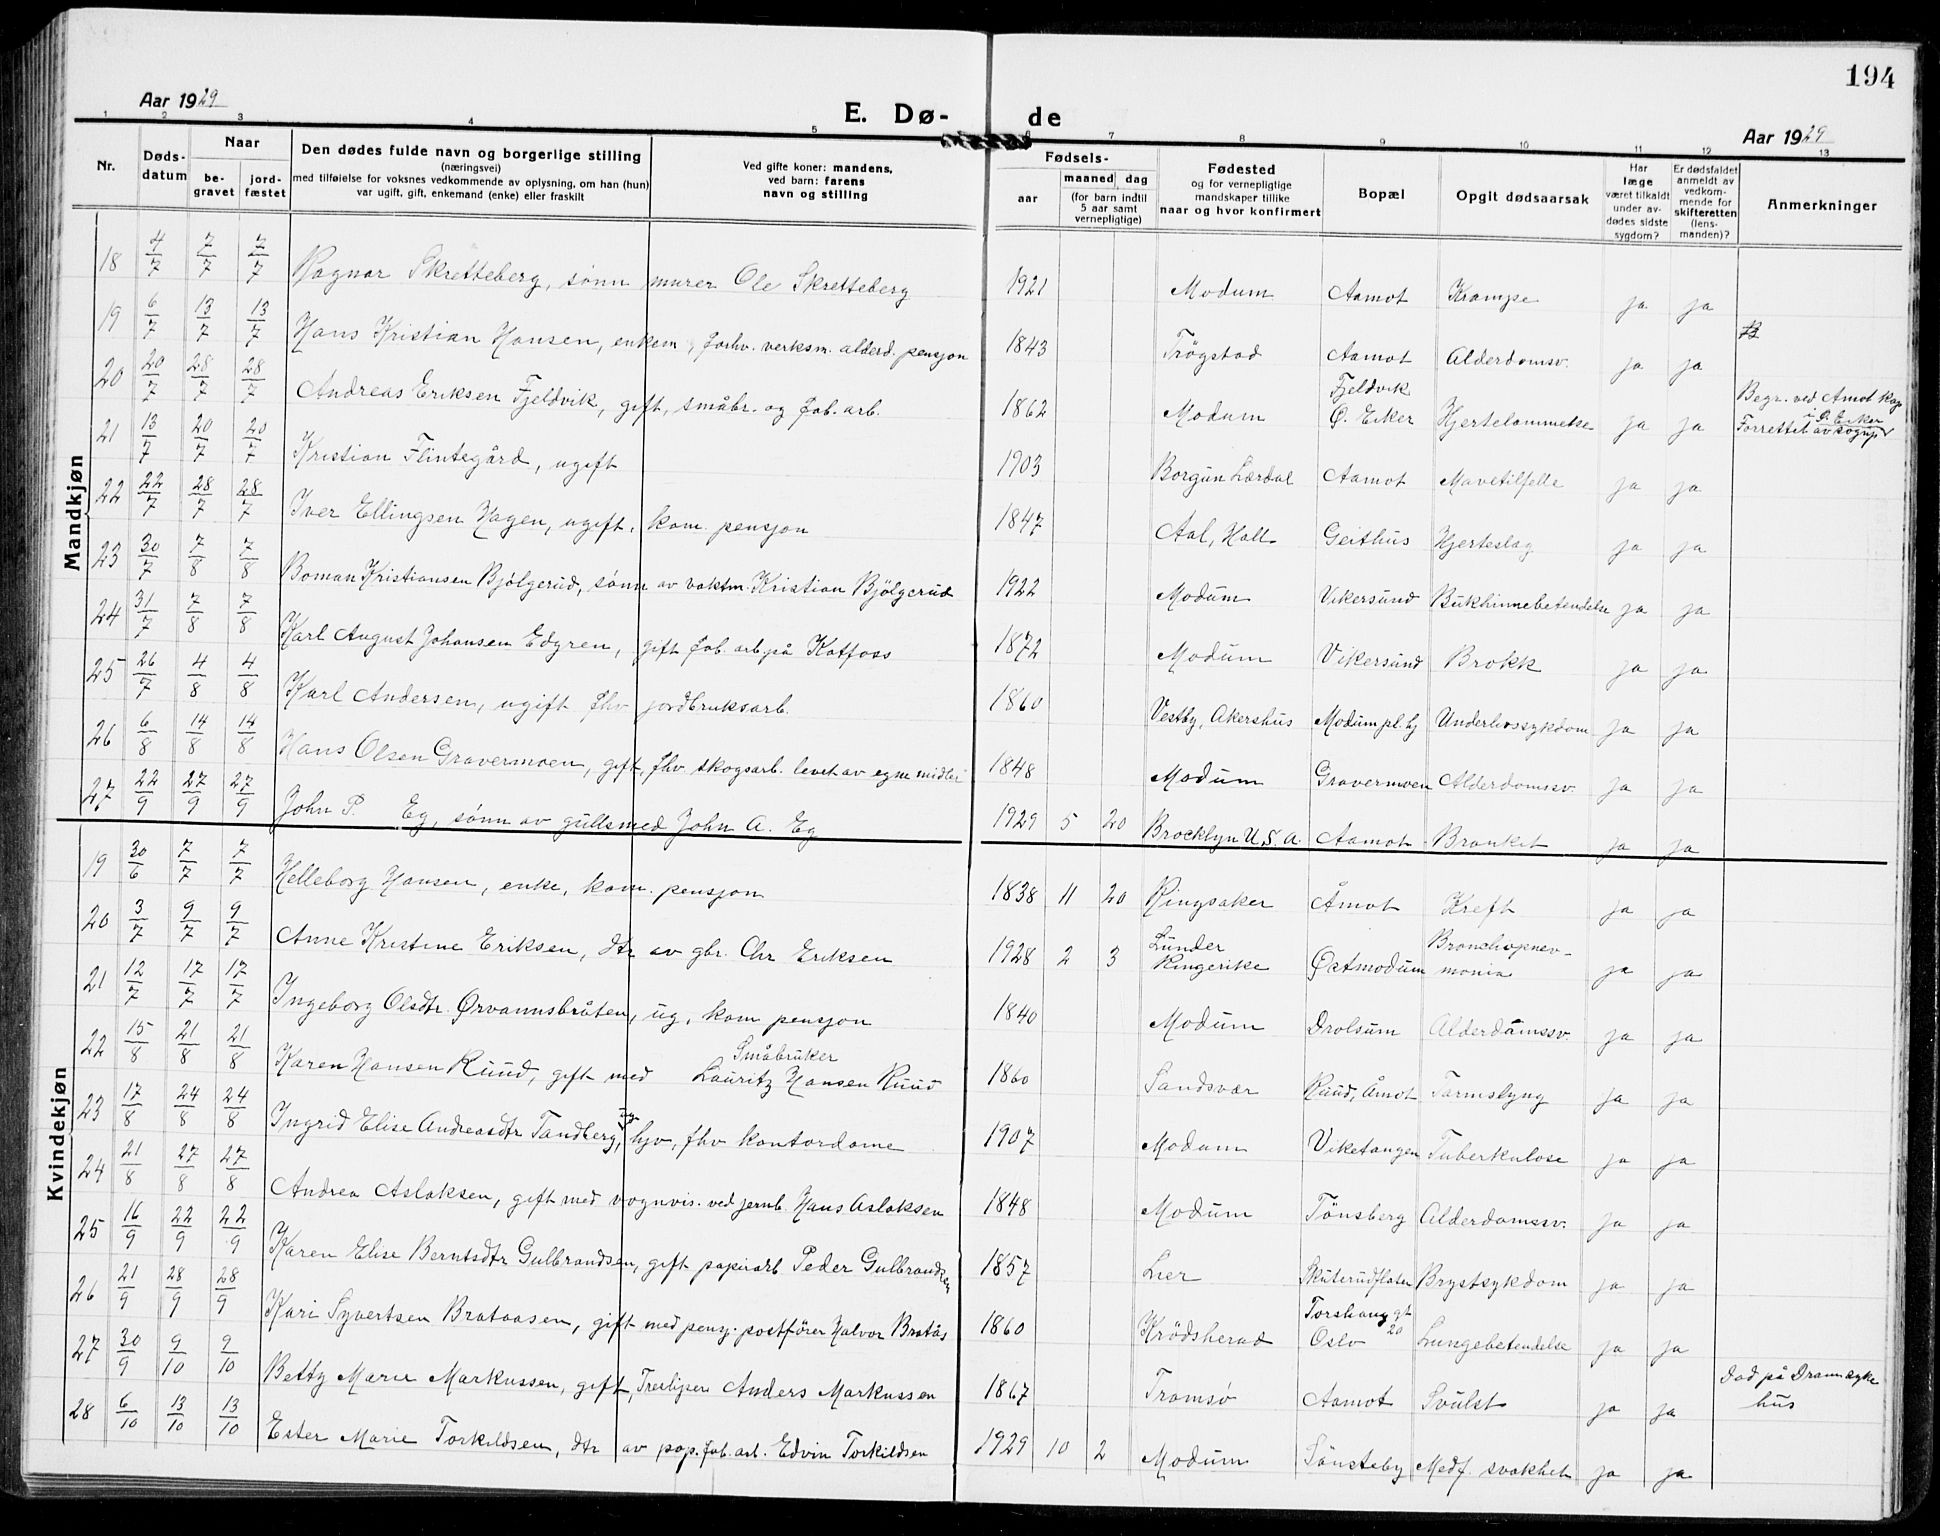 194
Aar 1929
E. Dø-
de
Aar 1929
1 2 3 4 5 6 7 8 9 10 11 12 13
Nr.
Døds-
datum
Naar
be-
gravet
jord-
fæstet
Den dødes fulde navn og borgerlige stilling
(næringsvei)
med tilføielse for voksnes vedkommende av oplysning, om han (hun)
var ugift, gift, enkemand (enke) eller fraskilt
Ved gifte koner: mandens,
ved barn: farens
navn og stilling
Fødsels-
aar
maaned dag
(for barn indtil
5 aar samt
vernepligtige)
Fødested
og for vernepligtige
mandskaper tillike
naar og hvor konfirmert
Bopæl
Opgit dødsaarsak
Har
læge
været tilkaldt
under av-
dødes sidste
sygdom?
Er dødsfaldet
anmeldt av
vedkom-
mende for
skifteretten
(lens-
manden)?
Anmerkninger
Mandkjøn
18 4/7 7/7 7/7 Ragnar Skretteberg, sønn murer Ole Skretteberg 1921 Modum Aamot Krampe ja ja
19 6/7 13/7 13/7 Hans Kristian Hansen, enkem, forhv. verksm. alderd. pensjon 1843 Trögstad Aamot Alderdomsv. ja ja
20 20/7 28/7 28/7 Andreas Eriksen Fjeldvik, gift, småbr. og fab. arb. 1862 Modum Fjeldvik Ø. Eiker Hjertelammelse ja ja Begr. ved Åmot kap
i Ø. Eiker
Forrettet av sognp
21 13/7 20/7 20/7 Kristian Flintegård, ugift 1903 Borgun Lærdal Aamot Mavetilfelle ja ja
22 22/7 28/7 28/7 Iver Ellingsen Hagen, ugift, kom. pensjon 1847 Aal, Hall. Geithus Hjerteslag ja ja
23 30/7 7/8 7/8 Boman Kristiansen Bjölgerud, sönn av vaktm. Kristian Bjölgerud 1922 Modum Vikersund Bukhinnebetendelse ja ja
24 31/7 7/8 7/8 Karl August Johansen Edgren, gift fab. arb. på Katfoss 1872 Modum Vikersund Brokk ja ja
25 26/7 4/8 4/8 Karl Andersen, ugift fhv jordbruksarb. 1860 Vestby, Akershus Modum pl. hj Underlivssykdom ja ja
26 6/8 14/8 14/8 Hans Olsen Gravermoen, gift, fhv. skogsarb. levet av egne midler 1848 Modum Gravermoen Alderdomssv. ja ja
27 22/9 27/9 27/9 John P. Eg, sønn av gullsmed John A. Eg 1929 5 20 Brocklyn U.S.A. Aamot Bronkit ja ja
Kvindekjøn
19 30/6 7/7 7/7 Helleborg Hansen, enke, kom. pensjon 1838 11 20 Ringsaker Åmot Kreft ja ja
20 3/7 9/7 9/7 Anne Kristine Eriksen, dtr av gbr. Chr Eriksen 1928 2 3 Lunder Ringerike Østmodum Bronchopnev-
monia ja ja
21 12/7 17/7 17/7 Ingeborg Olsdtr. Ørvannsbråten, ug, kom pensjon 1840 Modum Drolsum Alderdomssv. ja ja
22 15/8 21/8 21/8 Karen Hansen Ruud, gift med Småbruker Lauritz Hansen Ruud 1860 Sandsvær Ruud, Åmot Tarmslyng ja ja
23 17/8 24/8 24/8 Ingrid Elise Andreasdtr Tandberg, ug hjv, fhv kontordame 1907 Modum Viketangen Tuberkulose ja ja
24 21/8 27/8 27/8 Andrea Aslaksen, gift med vognvis. ved jernb. Hans Aslaksen 1848 Modum Tönsberg Alderdomssv. ja ja
25 16/9 22/9 22/9 Karen Elise Berntsdtr Gulbrandsen, gift papirarb Peder Gulbrandsen 1857 Lier Skuterudflaten Brystsykdom ja ja
26 21/9 28/9 28/9 Kari Syvertsen Brataasen, gift med pensj. postförer Halvor Bratås 1860 Krödsherad Torshaug gt 20 Oslo Lungebetendelse ja ja
27 30/9 9/10 9/10 Betty Marie Markussen, gift, Tresliper Anders Markussen 1867 Tromsø Aamot Svulst ja ja Död på Dram. syke
hus
28 6/10 13/10 13/10 Ester Marie Torkildsen, dtr av pap. fab. arb. Edvin Torkildsen 1929 10 2 Modum Sönsteby Medf. svakhet ja ja